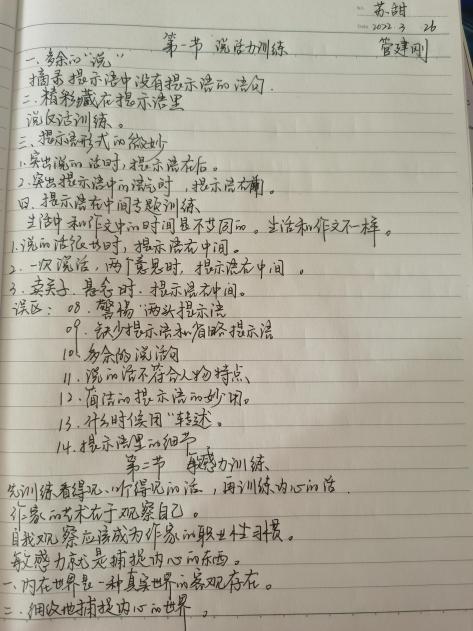 苏甜
No.
Date 2022.3 26
第一节 说话力训练 管建刚
一、多余的"说"
摘录提示语中没有提示语的语句.
二、精彩藏在提示语里
说反话训练。
三、提示语形式的微妙
1.突出说的话时,提示语在后。
2.突出提示语中的语气时,提示语在前。
四、提示语在中间专题训练
生活中和作文中的时间是不共同的。生活和作文不一样。
1.说的话很长时,提示语在中间。
2.一次说话,两个意思时,提示语在中间。
3.卖关子、悬念时.提示语在中间。
误区: 08.警惕"两头提示语
09.缺少提示语和省略提示语
10.多余的说话句
11.说的话不符合人物特点
12.简洁的提示语的妙用。
13.什么时候用"转述。
14.提示语里的细节
第二节 敏感力训练
先训练看得见、听得见的话,再训练内心的话.
作家的艺术在于观察自己。
自我观察应该成为作家的职业性习惯。
敏感力就是捕捉内心的东西。
一、内在世界是一种真实世界的客观存在。
二、细致地捕捉内心的世界。